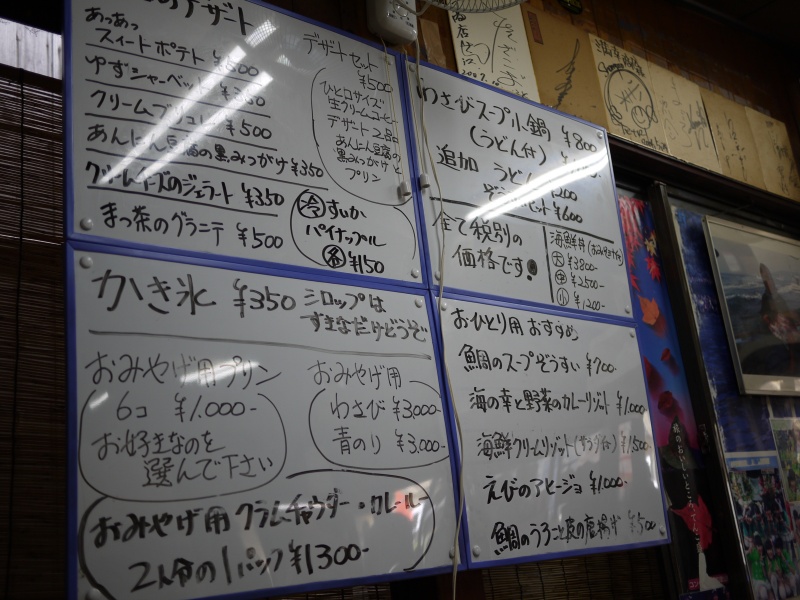 のデザート
あっあっ
スィートポテト ¥500
ゆずシャーベット ¥350
クリームブリュレ ¥500
あんにん豆腐の黒みつがけ ¥350
クリームチーズのジェラート ¥350
まっ茶のグラニテ ¥500
デザートセット
¥500
ひと口サイズ
生クリームコーヒー
デザート2品
あんにん豆腐の
黒みつがけと
プリン
冷 すいか
パイナップル
各 ¥150
わさびスープル鍋 ¥800
(うどん付)
追加 うどん
セット ¥600
全て税別の
価格です!
海鮮丼
大 ¥3800-
中 ¥2500-
小 ¥1,200-
かき氷 ¥350 シロップは
すきなだけどうぞ
おみやげ用プリン
6コ ¥1.000-
お好きなのを
選んで下さい
おみやげ用
わさび ¥3,000-
青のり ¥3.000-
おみやげ用 クラムチャウダー・カレールー
2人分の1パック ¥1300-
おひとり用 おすすめ
鯛のスープぞうすい ¥700-
海の幸と野菜のカレーリゾット ¥1,000-
海鮮クリームリゾット(サラダ付) ¥1,500
えびのアヒージョ ¥1.000-
鯛のうろこと皮の唐揚げ ¥500